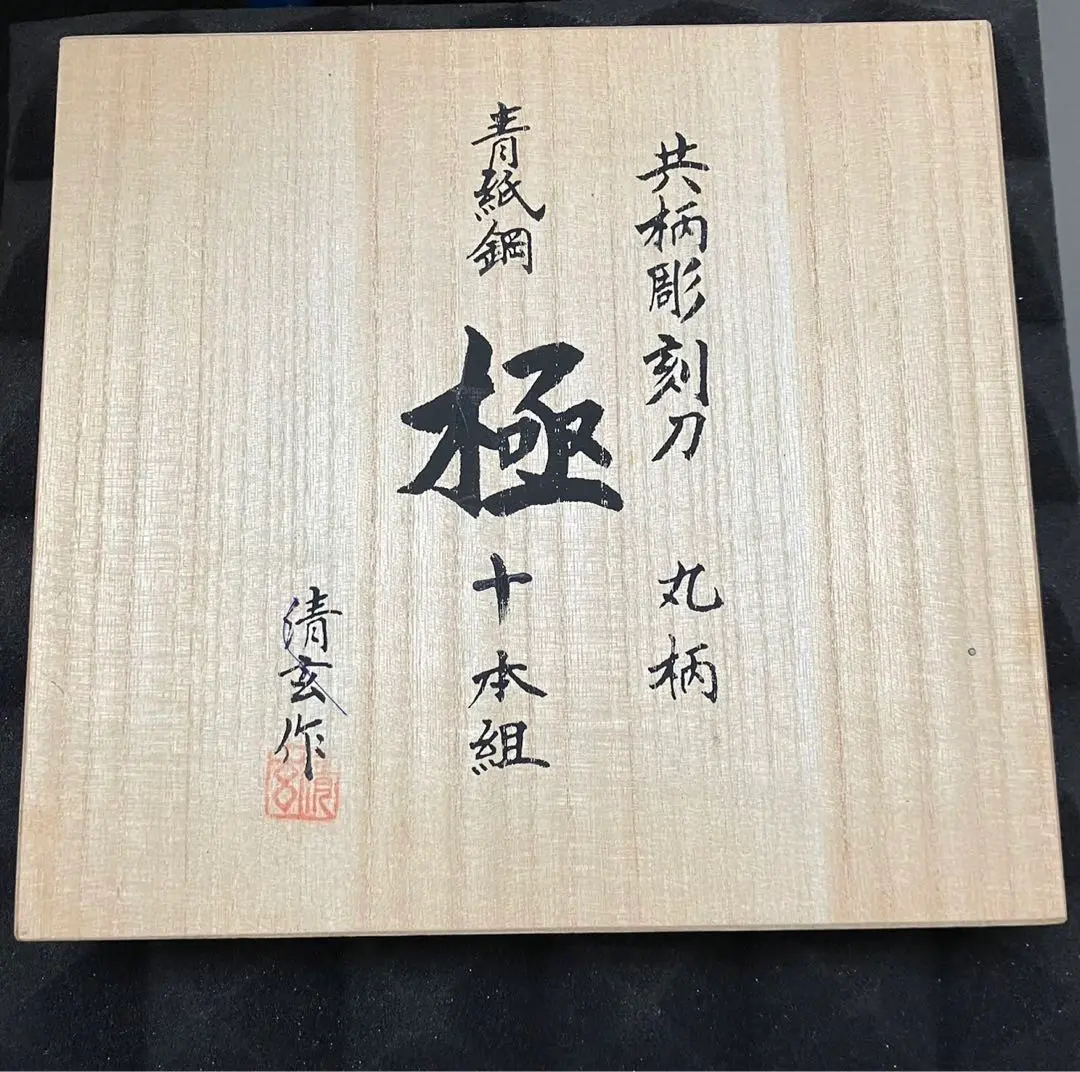 共柄彫刻刀 丸柄
青紙鋼 極 十本組
清玄作